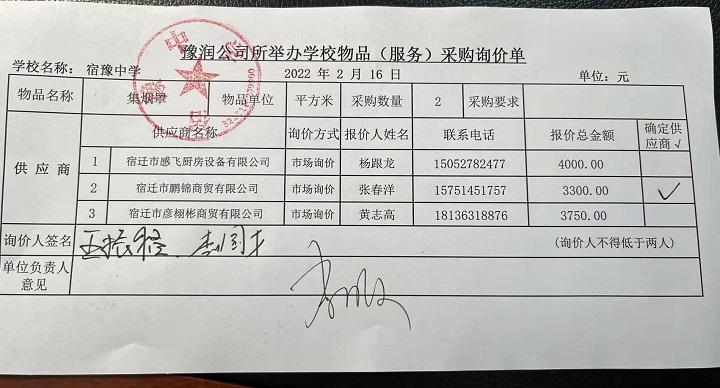 豫润公司所举办学校物品（服务）采购询价单
学校名称： 宿豫中学 2022 年 2 月 16 日 单位：元
物品名称 集烟罩 物品单位 平方米 采购数量 2 采购要求
供应商 供应商名称 询价方式 报价人姓名 联系电话 报价总金额 确定供应商√
1 宿迁市感飞厨房设备有限公司 市场询价 杨跟龙 15052782477 4000.00
2 宿迁市鹏锦商贸有限公司 市场询价 张春洋 15751451757 3300.00 √
3 宿迁市彦栩彬商贸有限公司 市场询价 黄志高 18136318876 3750.00
询价人签名 (询价人不得低于两人)
单位负责人
意见